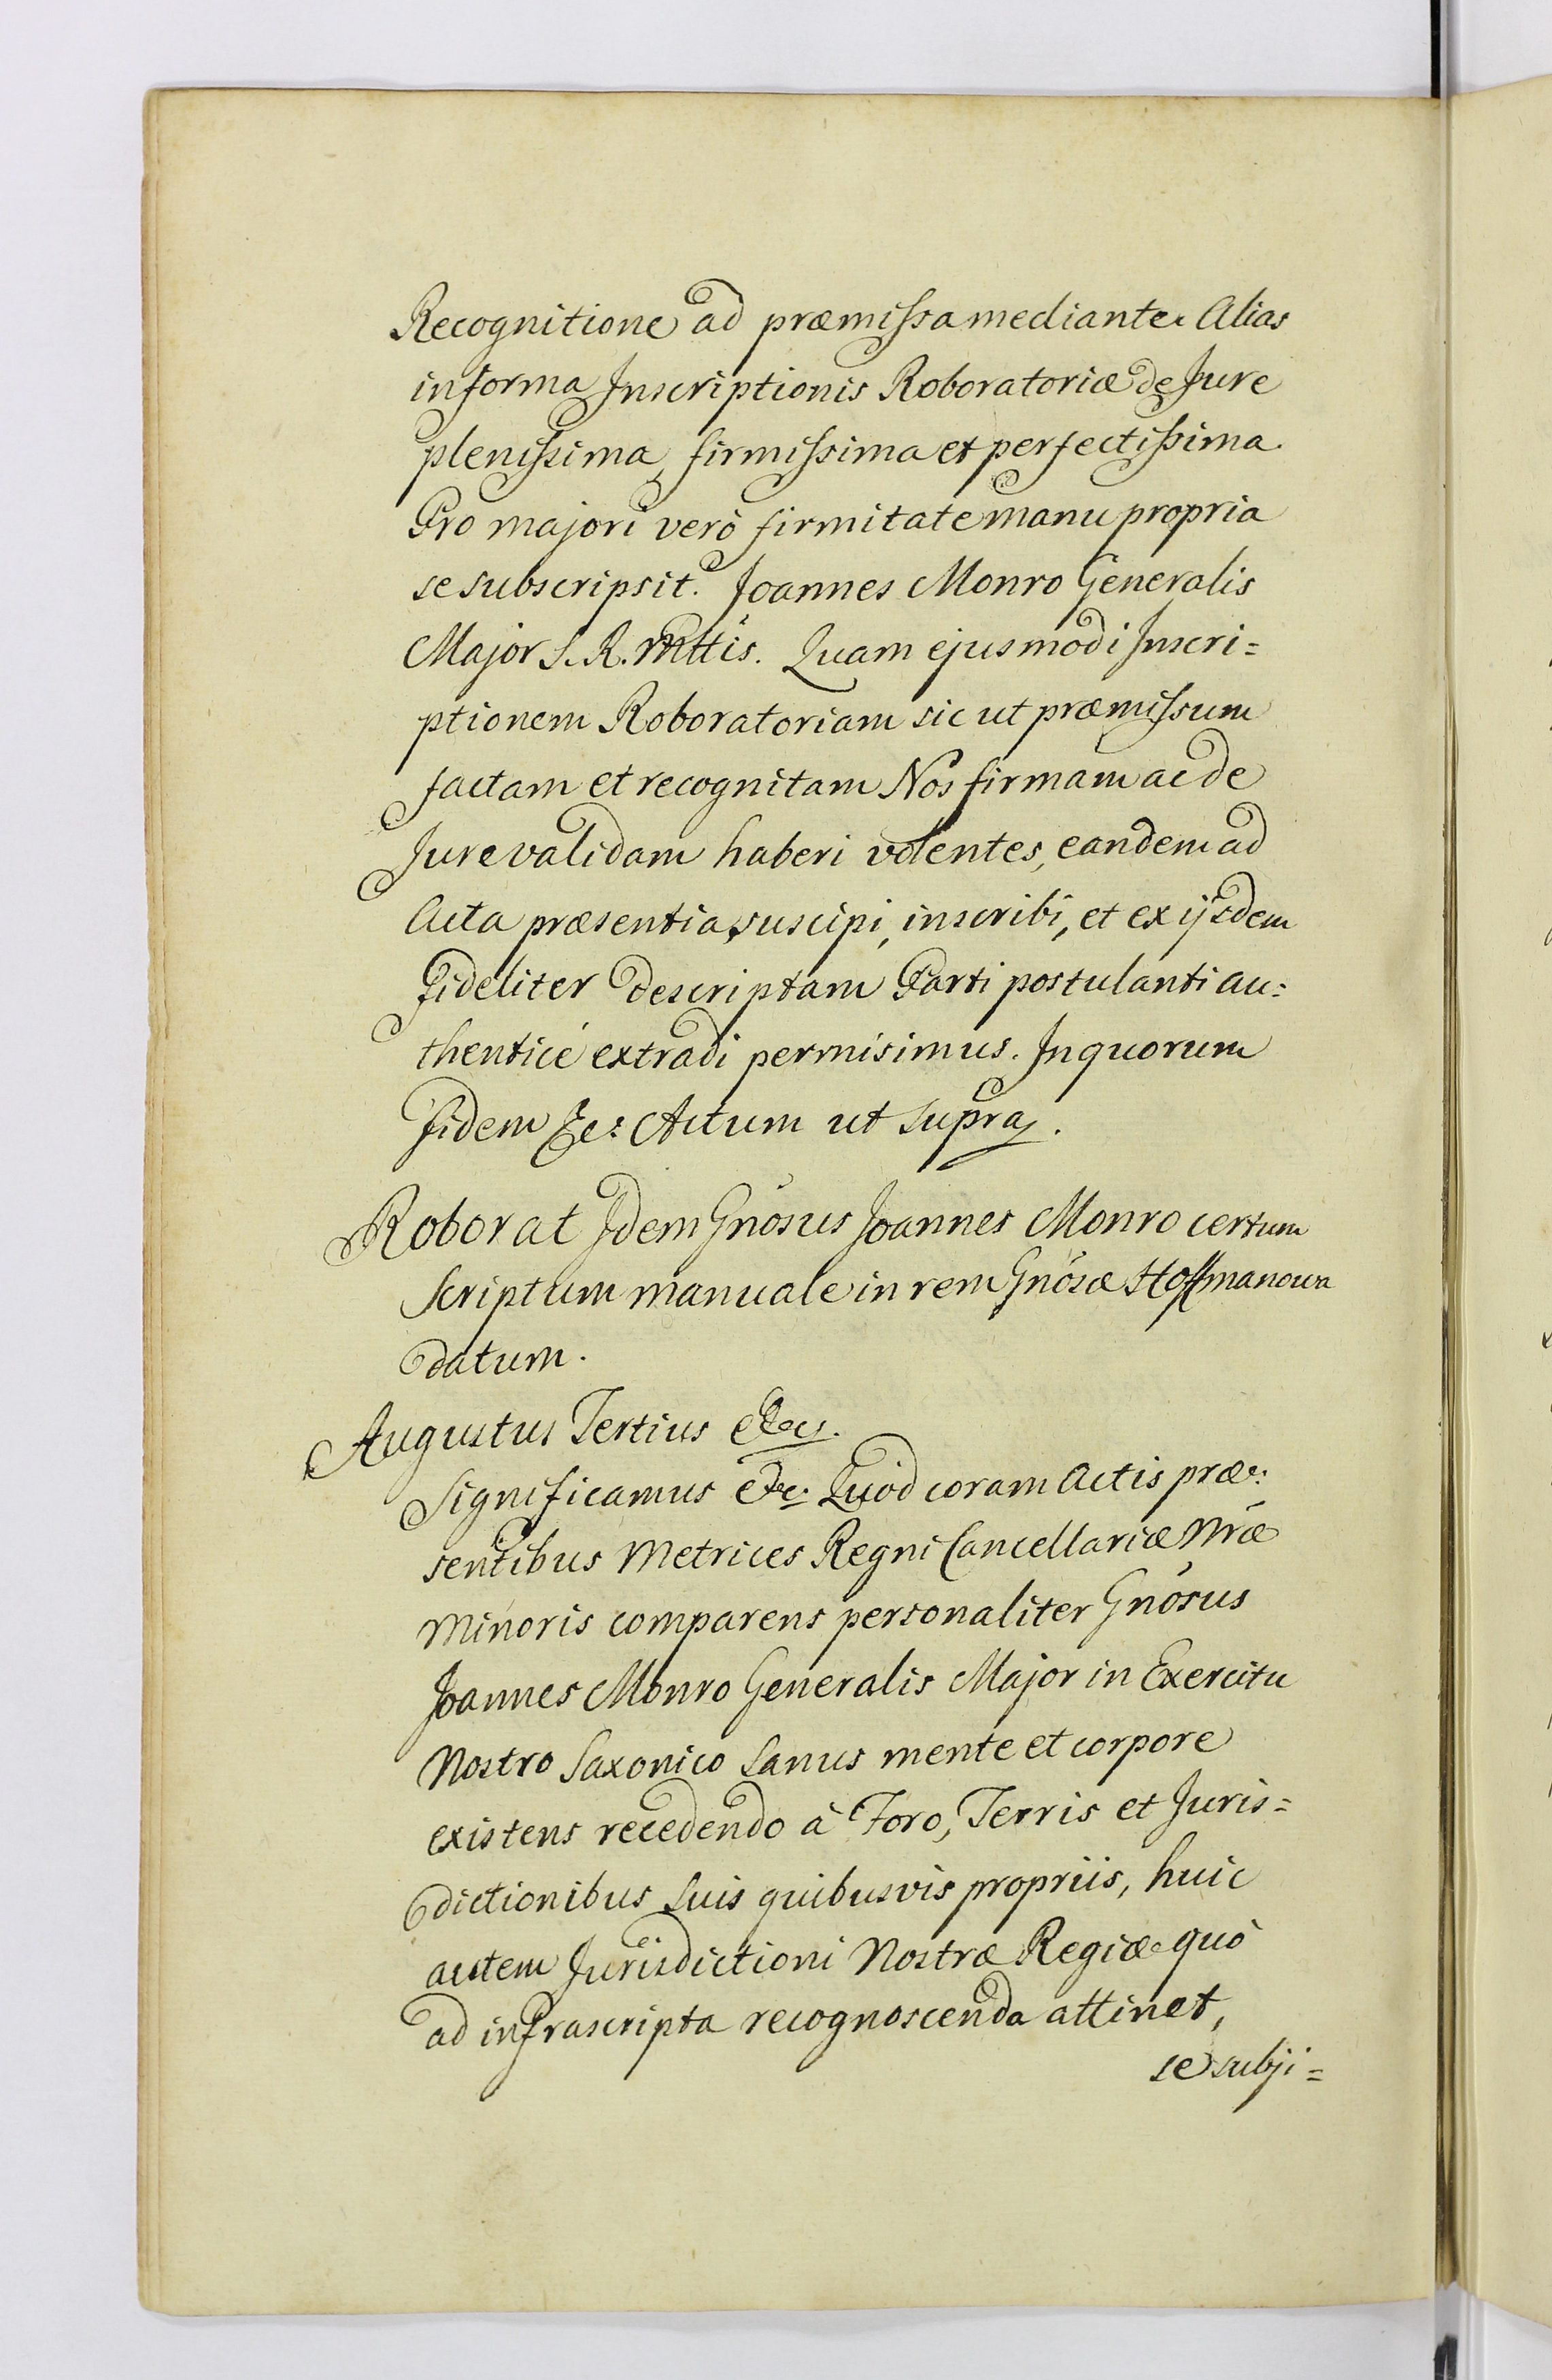 Recognitione ad præmissa mediante. Alias
in forma Inscriptionis Roboratoriæ de Jure
plenissima, firmissima et perfectissima.
Pro majori verò firmitate manu propria
se subscripsit. Joannes Monro Generalis
Major S. R. Mttis. Quam ejusmodi Inscri=
ptionem Roboratoriam sic ut præmissum
factam et recognitam Nos firmam ac de
Jure validam haberi volentes, eandem ad
Acta præsentia suscipi, inscribi, et ex ijsdem
fideliter descriptam Parti postulanti au=
thenticè extradi permisimus. In quorum
fidem &c: Actum ut supra.
Roborat Idem Gnosus Joannes Monro certum
Scriptum manuale in rem Gnosæ Hoffmanowa
datum.
Augustus Tertius &c.
Significamus &c. Quod coram Actis præ=
sentibus Metrices Regni Cancellariæ Nræ
Minoris comparens personaliter Gnosus
Joannes Monro Generalis Major in Exercitu
Nostro Saxonico Sanus mente et corpore
existens recedendo à Foro, Terris et Juris=
dictionibus suis quibusvis propriis, huic
autem Jurisdictioni Nostræ Regiæ quò
ad infrascripta recognoscenda attinet,
se subji=